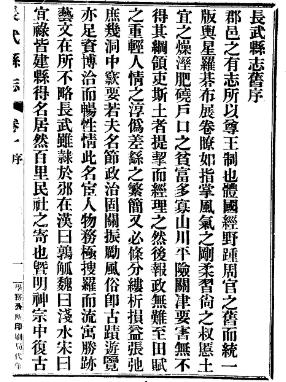 長武縣志舊序
郡邑之有志所以尊王制也體國經野踵周官之舊而統一
版輿星羅棊布展卷瞭如指掌風氣之剛柔習尙之淑慝土
宜之燥溼肥磽戶口之貧富多寡山川平險關津要害無不
得其綱領束斯土者提挈而經理之然後報政無難至田賦
之重輕人情之淳僞差繇之繁簡又必條分縷析損益張弛
庶幾洞中窾要若夫名節政治固關振勵風俗卽古蹟遊覽
亦足資博洽而暢性情此名宦人物務極搜羅而流寓勝跡
藝文在所不略長武雖隸於邠在漢曰鶉觚魏曰淺水宋曰
宜祿皆建縣得名居然百里民社之寄也曁明神宗中復古
長武縣志
卷一
序
一